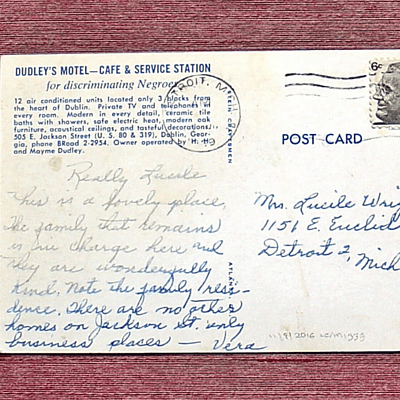 DUDLEY'S MOTEL—CAFE & SERVICE STATION
for discriminating Negroes
12 air conditioned units located only 3 blocks from
the heart of Dublin. Private TV and telephones in
every room. Modern in every detail, ceramic tile
baths with showers, safe electric heat, modern oak
furniture, acoustical ceilings, and tasteful decorations.
505 E. Jackson Street (U. S. 80 & 319), Dublin, Geor-
gia, phone BRoad 2-2954. Owner operated by H. H.
and Mayme Dudley.
Really Lucile
This is a lovely place,
the family that remains
in charge here and
they are wonderfully
kind. Note the family resi-
dence. There are no other
homes on Jackson St. only
business places — Vera
DETROIT, MICH
6¢
POST CARD
Mrs. Lucile
1151 E. Euclid
Detroit 2,
Mich
CRAFTSMEN